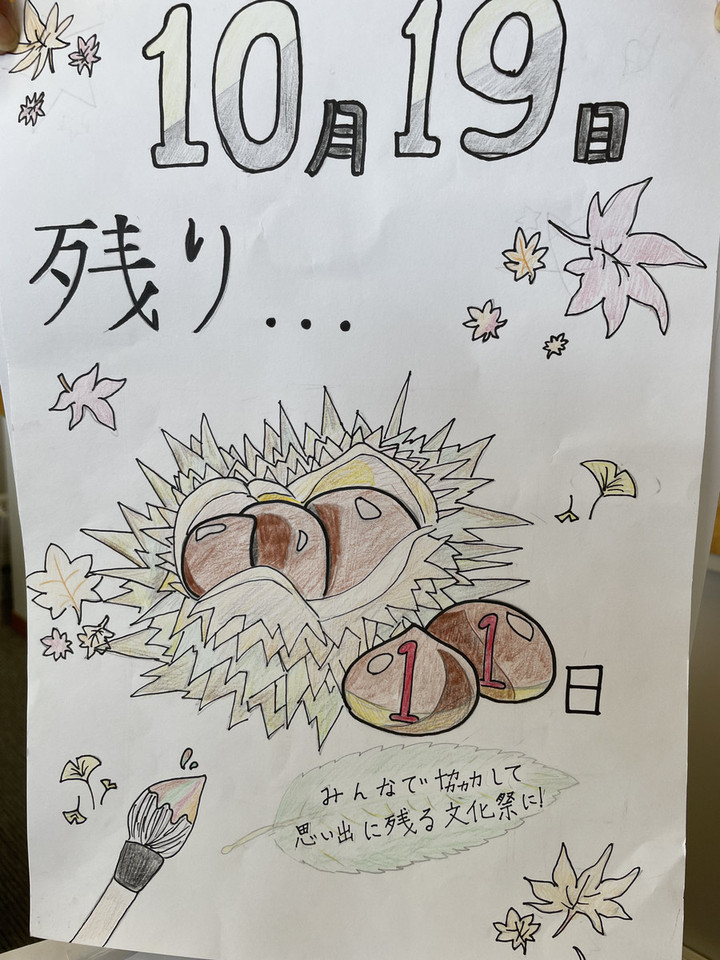 10月19日
残り...
11日
みんなで協力して
思い出に残る文化祭に!